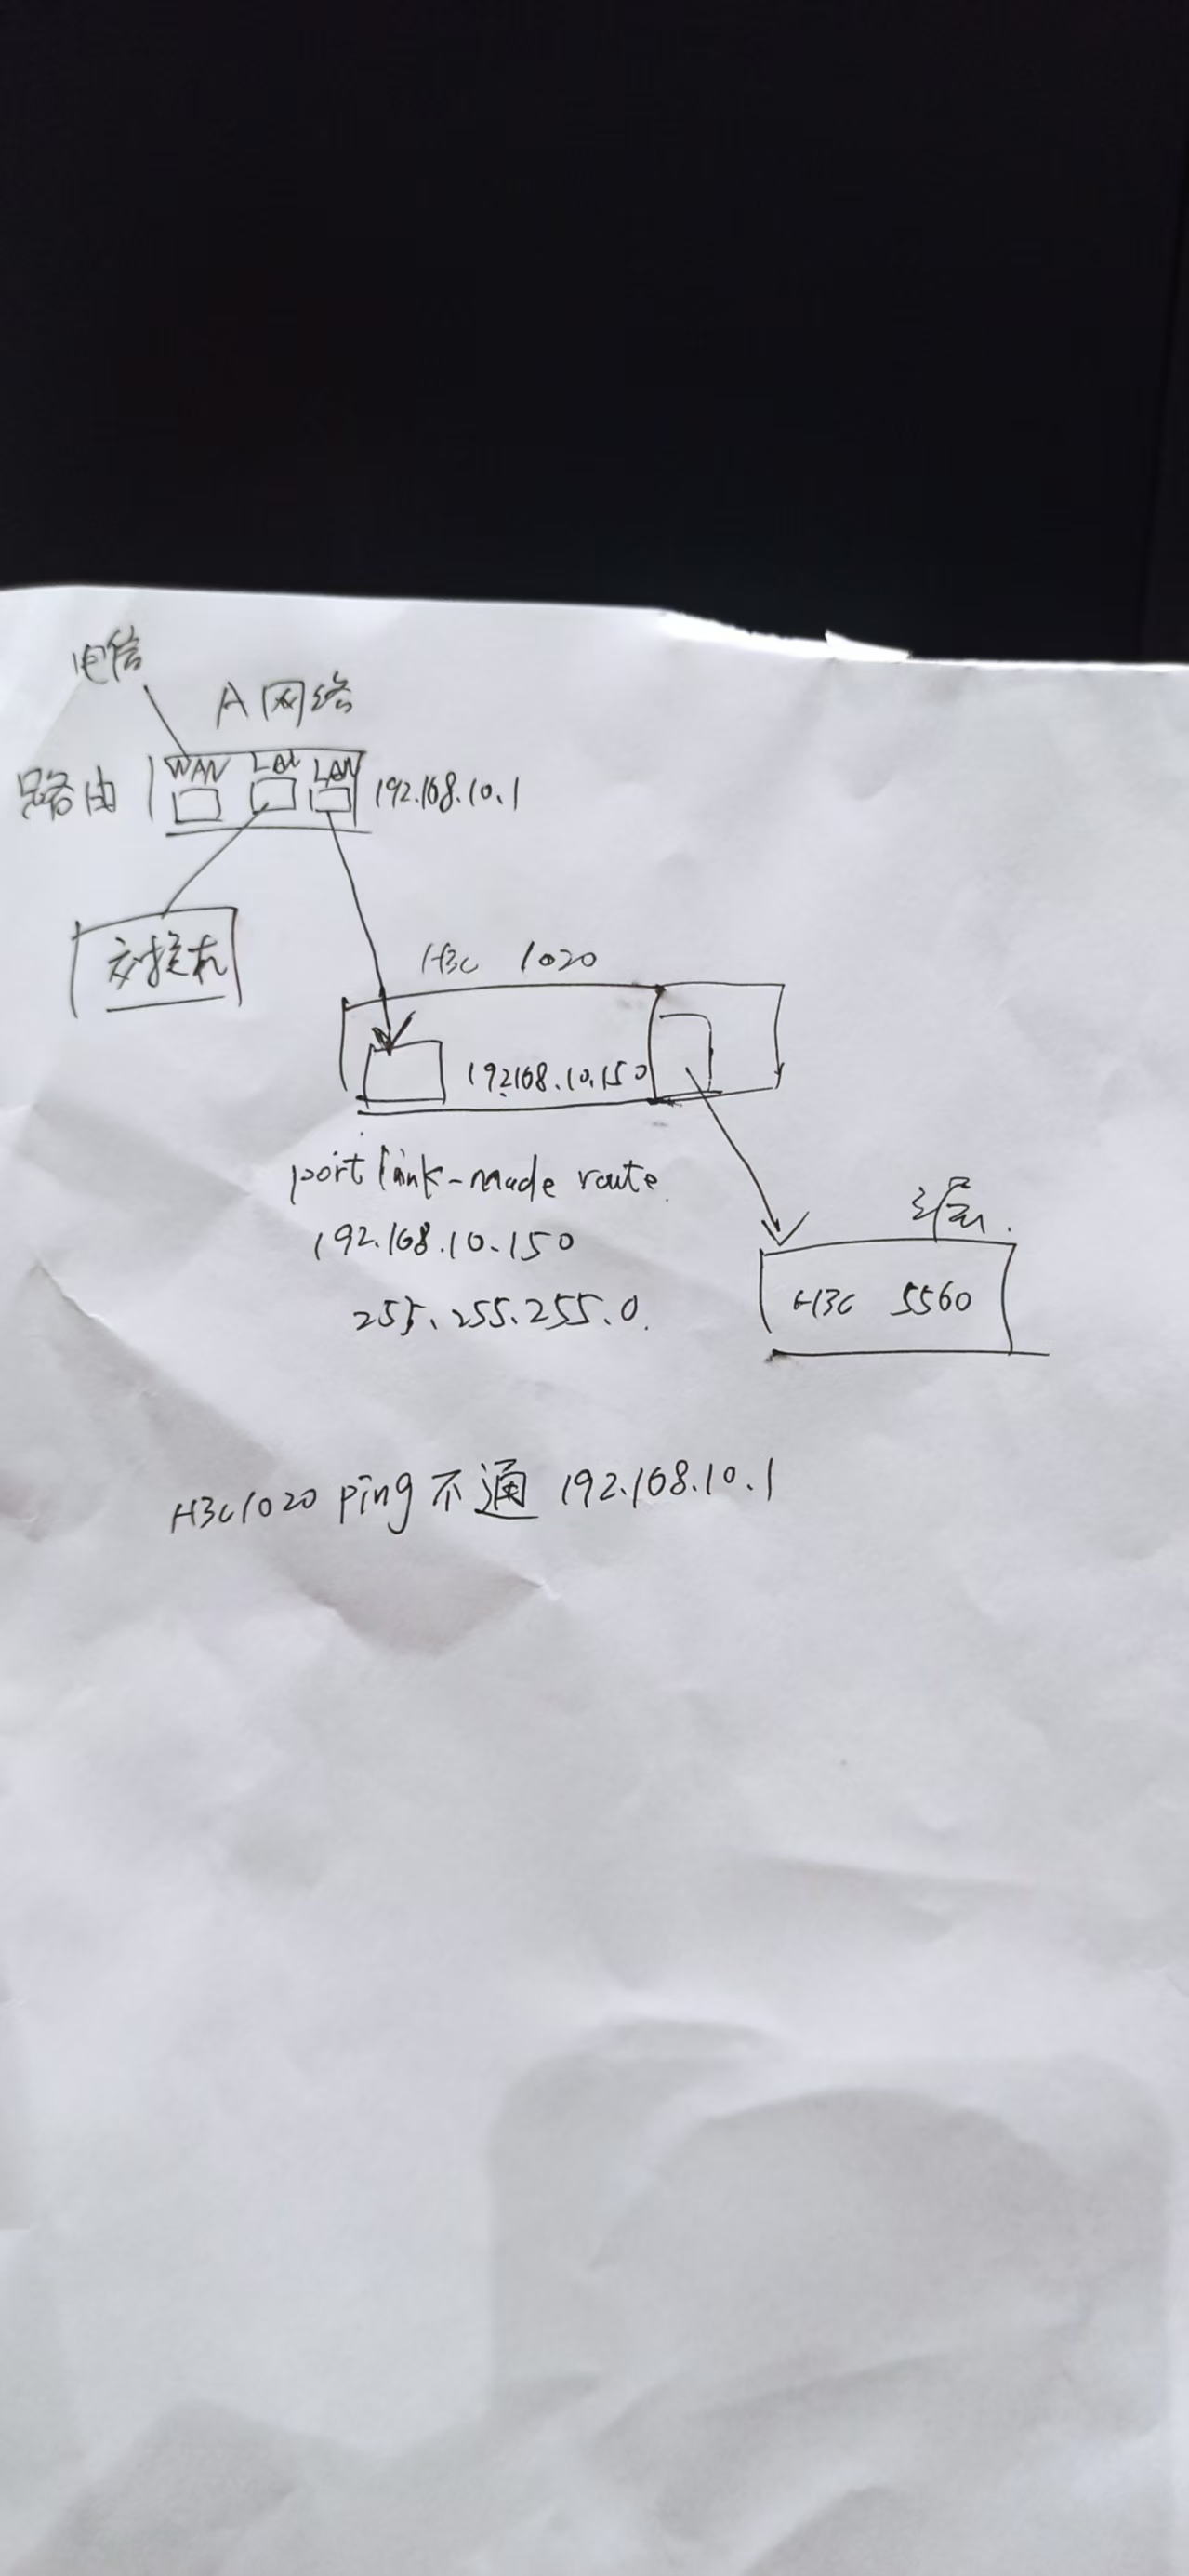 电信
A网络
路由 WAN LAN LAN 192.168.10.1
交换机
H3C 1020
192168.10.150
port link-made route
192.168.10.150
255.255.255.0.
三层.
H3C 5560
H3C1020 ping不通 192.168.10.1